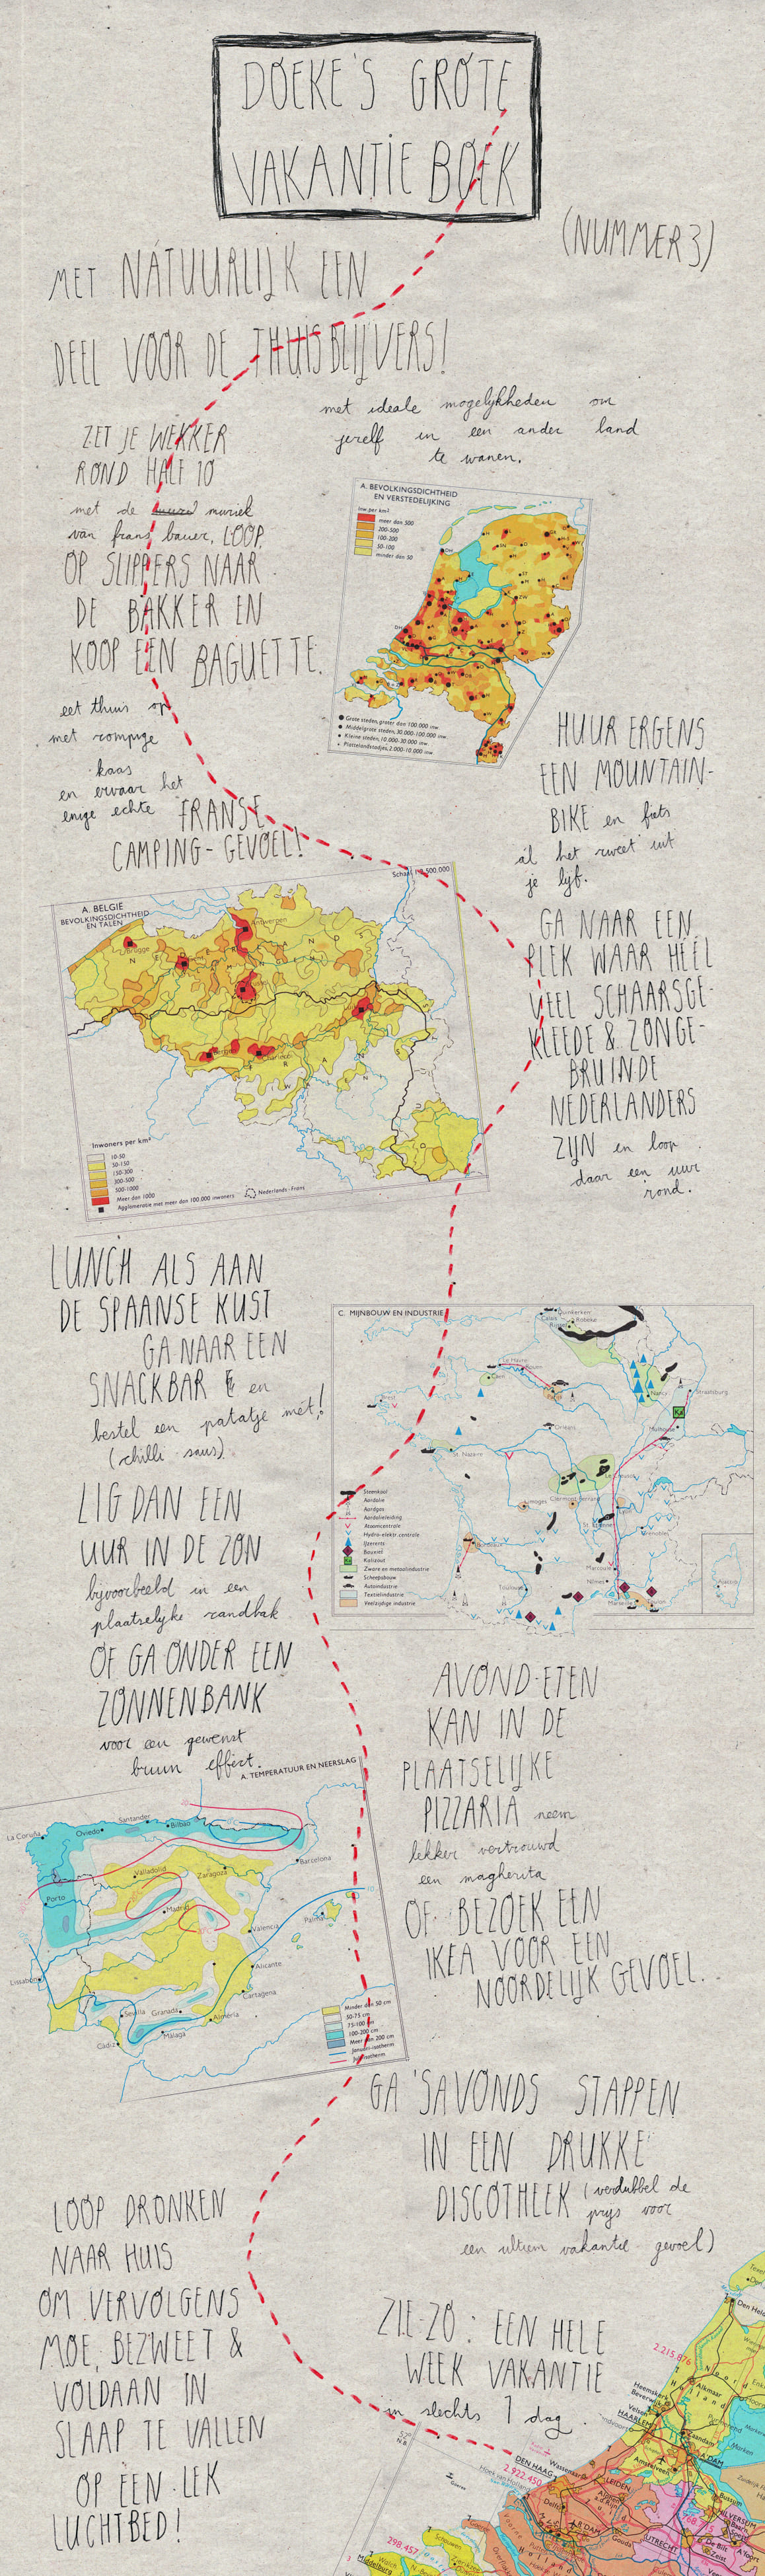 DOEKE'S GROTE
VAKANTIE BOEK
(NUMMER 3)
MET NATUURLIJK EEN
DEEL VOOR DE THUISBLIJVERS!
met ideale mogelijkheden om
jezelf in een ander land
te wanen.
ZET JE WEKKER
ROND HALF 10
met de muziek
van frans bauer, LOOP
OP SLIPPERS NAAR
DE BAKKER EN
KOOP EEN BAGUETTE.
eet thuis op
met romige
kaas
en ervaar het
enige echte FRANSE
CAMPING-GEVOEL!
A. BEVOLKINGSDICHTHEID
EN VERSTEDELIJKING
Inw. per km²
meer dan 500
200-500
100-200
50-100
minder dan 50
Grote steden, groter dan 100.000 inw.
Middelgrote steden, 30.000-100.000 inw.
Kleine steden, 10.000-30.000 inw.
Plattelandsstadjes, 2.000-10.000 inw.
HUUR ERGENS
EEN MOUNTAIN-
BIKE en fiets
ál het zweet uit
je lijf.
GA NAAR EEN
PLEK WAAR HÉÉL
VEEL SCHAARSGE-
KLEEDE & ZONGE-
BRUINDE
NEDERLANDERS
ZIJN en loop
daar een uur
rond.
A. BELGIE
BEVOLKINGSDICHTHEID
EN TALEN
Antwerpen
Brugge
Inwoners per km²
10-50
50-150
150-300
300-500
500-1000
Meer dan 1000
Agglomeratie met meer dan 100.000 inwoners
Nederlands-Frans
LUNCH ALS AAN
DE SPAANSE KUST
GA NAAR EEN
SNACKBAR en
bestel een patatje mét!
(chilli saus)
LIG DAN EEN
UUR IN DE ZON
bijvoorbeeld in een
plaatselijke zandbak
OF GA ONDER EEN
ZONNENBANK
voor een gewenst
bruin effect.
C. MIJNBOUW EN INDUSTRIE
Duinkerken
Calais
Roubaix
Le Havre
Rouen
Nancy
Straatsburg
Mulhouse
Orléans
St. Nazaire
Limoges
Clermont-Ferrand
Grenoble
Bordeaux
Toulouse
Nîmes
Ajaccio
Steenkool
Aardolie
Aardgas
Aardolieleiding
Atoomcentrale
Hydro-elektr. centrale
IJzererts
Bauxiet
Kalizout
Zware en metaalindustrie
Scheepsbouw
Autoindustrie
Textielindustrie
Veelzijdige industrie
AVOND-ETEN
KAN IN DE
PLAATSELIJKE
PIZZARIA neem
lekker vertrouwd
een magherita
OF BEZOEK EEN
IKEA VOOR EEN
NOORDELIJK GEVOEL.
A. TEMPERATUUR EN NEERSLAG
La Coruña
Oviedo
Santander
Bilbao
Valladolid
Zaragoza
Barcelona
Porto
Madrid
Valencia
Palma
Lissabon
Alicante
Cartagena
Sevilla
Granada
Almeria
Cádiz
Málaga
Minder dan 50 cm
50-75 cm
75-100 cm
100-200 cm
Meer dan 200 cm
Januari-isotherm
Juli-isotherm
GA 'SAVONDS STAPPEN
IN EEN DRUKKE
DISCOTHEEK (verdubbel de
prijs voor
een ultiem vakantie gevoel)
LOOP DRONKEN
NAAR HUIS
OM VERVOLGENS
MOE, BEZWEET &
VOLDAAN IN
SLAAP TE VALLEN
OP EEN LEK
LUCHTBED!
ZIE-ZO: EEN HELE
WEEK VAKANTIE
in slechts 1 dag.
2.215.876
Den Helder
Alkmaar
Heemskerk
Beverwijk
Velsen
HAARLEM
Zaandam
A'DAM
Amstelveen
Marken
Bussum
HILVERSUM
De Bilt
Zeist
UTRECHT
DEN HAAG
2.922.450
Wassenaar
LEIDEN
Hoek van Holland
Delft
R'DAM
Gouda
Goeree
Schouwen
298.457
Middelburg